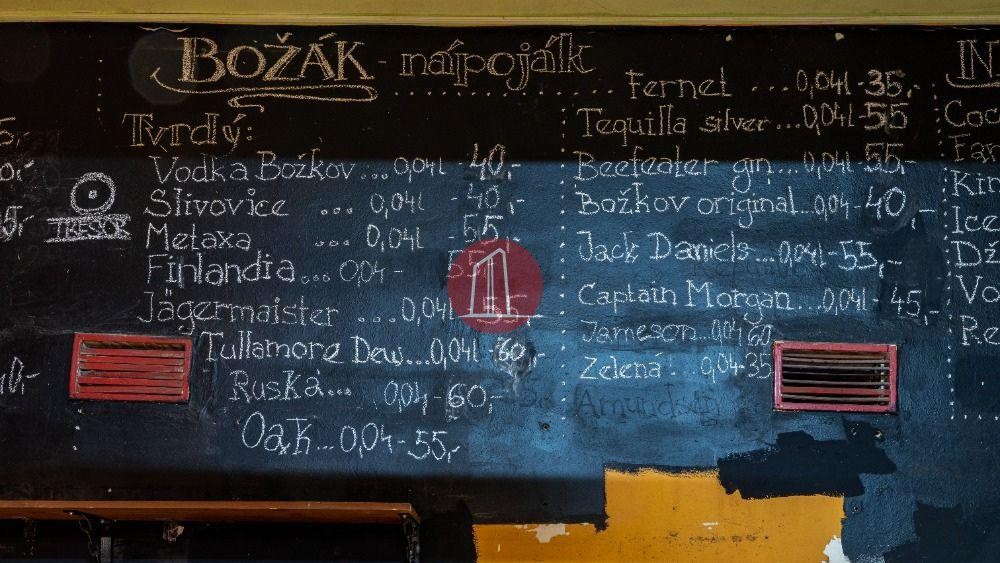 BOŽÁK - nápoják
Tvrdý:
Vodka Božkov...0,04l -40,-
Slivovice ... 0,04l -40,-
Metaxa ... 0,04l 55,-
Finlandia... 0,04- 55
Jägermaister ... 0,04l
Tullamore Dew...0,04l -60,-
Ruská... 0,04 -60,-
Oak... 0,04-55,-
TRESOR
Fernet ...0,04l-35,-
Tequilla silver...0,04l-55
Beefeater gin....0,04l-55,-
Božkov original...0,04-40,-
Jack Daniels...0,04l-55,-
Captain Morgan...0,04l-45,-
Jameson..0,04 60
Zelená: .. 0,04-35
Amundsen